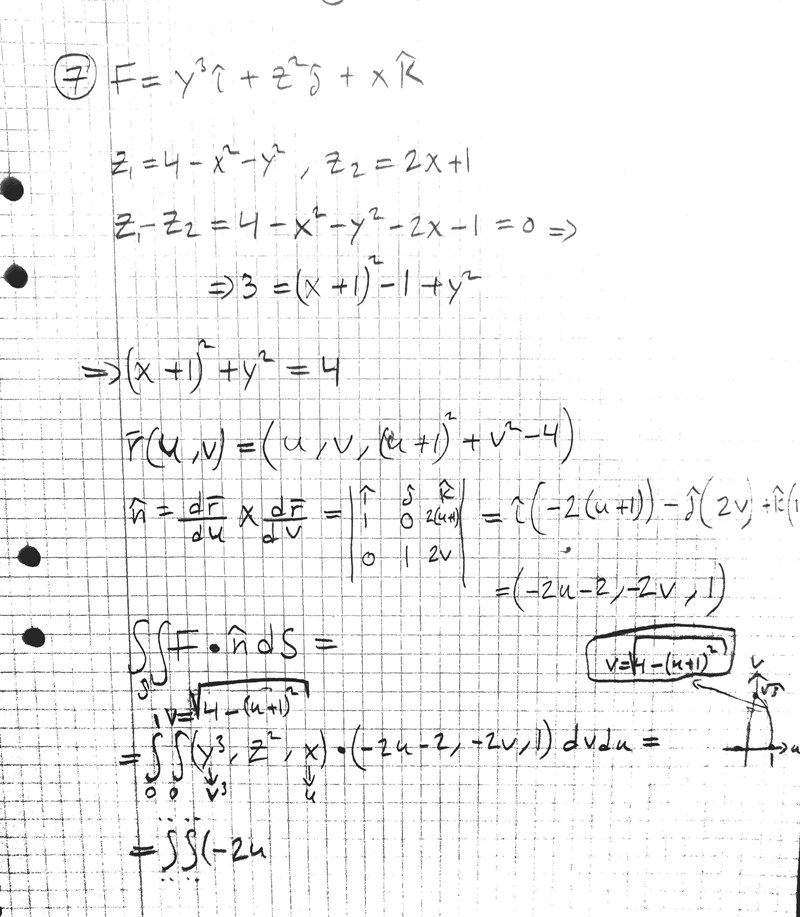 ⑦ F = y³î + z²ĵ + xk̂
z₁ = 4 - x² - y² , z₂ = 2x + 1
z₁ - z₂ = 4 - x² - y² - 2x - 1 = 0 ⇒
⇒ 3 = (x + 1)² - 1 + y²
⇒ (x + 1)² + y² = 4
r̄(u, v) = (u, v, (u + 1)² + v² - 4)
n̂ = dr̄/du × dr̄/dv = | î ĵ k̂ | = î(-2(u+1)) - ĵ(2v) + k̂(1
| 1 0 2(u+1) |
| 0 1 2v |
= (-2u - 2, -2v, 1)
∬ F • n̂ dS =
S
v = √(4 - (u+1)²)
v
√3
1 v = √(4 - (u+1)²)
= ∫∫ (y³, z², x) • (-2u - 2, -2v, 1) dv du =
u
1
0 0 v³ u
= ∬ (-2u